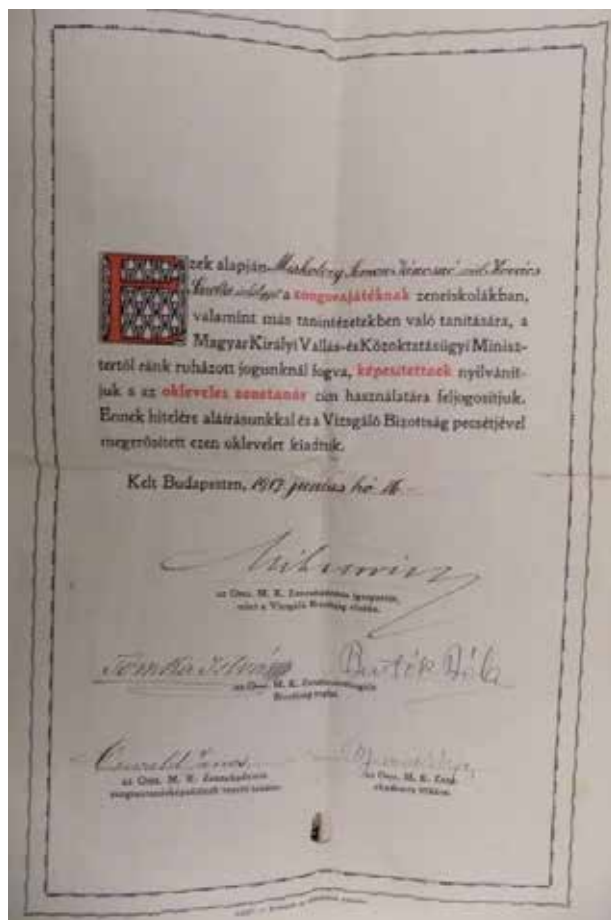 Ezek alapján Miskolczy Kovács
a zongorajátéknak zeneiskolákban,
valamint más tanintézetekben való tanítására, a
Magyar Királyi Vallás-és Közoktatásügyi Minisz-
tertől ránk ruházott jogunknál fogva, képesítettnek nyilvánít-
juk s az okleveles zenetanár cím használatára feljogosítjuk.
Ennek hitelére aláírásunkkal és a Vizsgáló Bizottság pecsétjével
megerősített ezen oklevelet kiadtuk.
Kelt Budapesten, 1917 junius hó 16
az Orsz. M. K. Zeneakadémia igazgatója,
mint a Vizsgáló Bizottság elnöke.
Tomka István Bartók Béla
az Orsz. M. K.
Bizottság tagjai.
János
az Orsz. M. K. Zeneakadémia
az Orsz. M. K. Zene-
akadémia titkára.